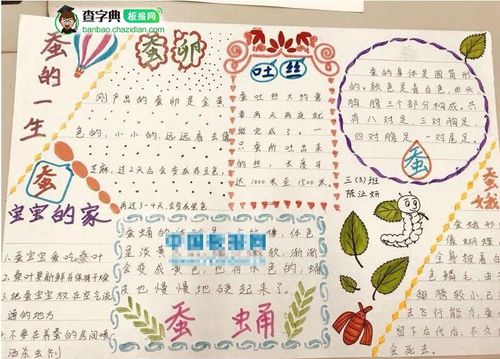 查字典 板报网
banbao.chazidian.com
蚕的一生
蚕卵
刚产出的蚕卵是金黄
色的,小小的,远远看去像
芝麻,过2天后会变成
再过3-4天,会变成
吐丝
蚕吐丝大约需
要两天两夜就
能完成了。一
只蚕所吐出来
的丝,长度可
达1000米至1500米。
蚕的身体是圆筒形
的,颜色是青白色,由头
胸,腹三个部分构成,只
有八对足,三对胸足,
四对腹足,一对尾足。
蚕
三(3)班
陈
蚕
宝宝的家
1.蚕宝宝爱吃桑叶
2.桑叶要新鲜并保持干燥
3.把蚕宝宝放在空气流
通的地方
4.不要在养蚕的房间喷
洒杀虫剂
中国板报网
会变成黄色,
皮也慢慢地硬起来了。
蚕蛹
蚕蛾
蚕蛾形
像蝴蝶
全身披着白
色鳞毛,由
翅膀较小已
去飞行能力,蚕
留下后代后,不久
会死去。